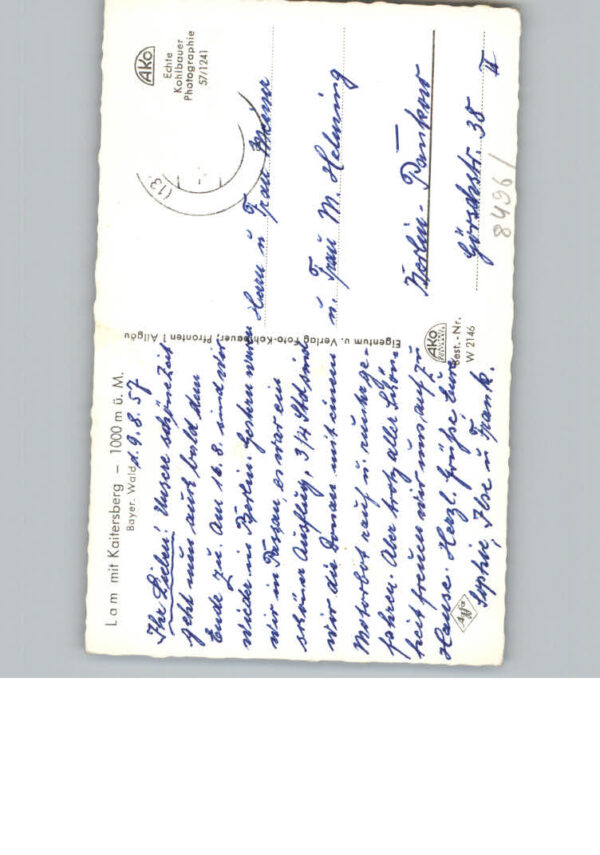 Lam mit Kaitersberg – 1000 m ü. M.
Bayer. Wald d. 9.8.57
Ihr Lieben! Unsere schöne Zeit
geht nun auch bald dem
Ende zu. Am 16.8. sind wir
wieder in Berlin. Gestern waren
wir in Passau, es war ein
schöner Ausflug, 3/4 Std sind
wir die Donau mit einem
Motorboot rauf u. runter ge-
fahren. Aber trotz aller Schön-
heit freuen wir uns auf zu
Hause. Herzl. Grüße Eure
Sophie, Ilse u. Frank.
Agfa
Eigentum u. Verlag Foto-Kohlbauer, Pfronten / Allgäu
AKO
Best.-Nr.
W 2146
AKO
Echte
Kohlbauer
Photographie
57/1241
(13
Herrn u. Frau
u. Frau M. Helming
Berlin – Pankow
Görschstr. 38 II
8496/